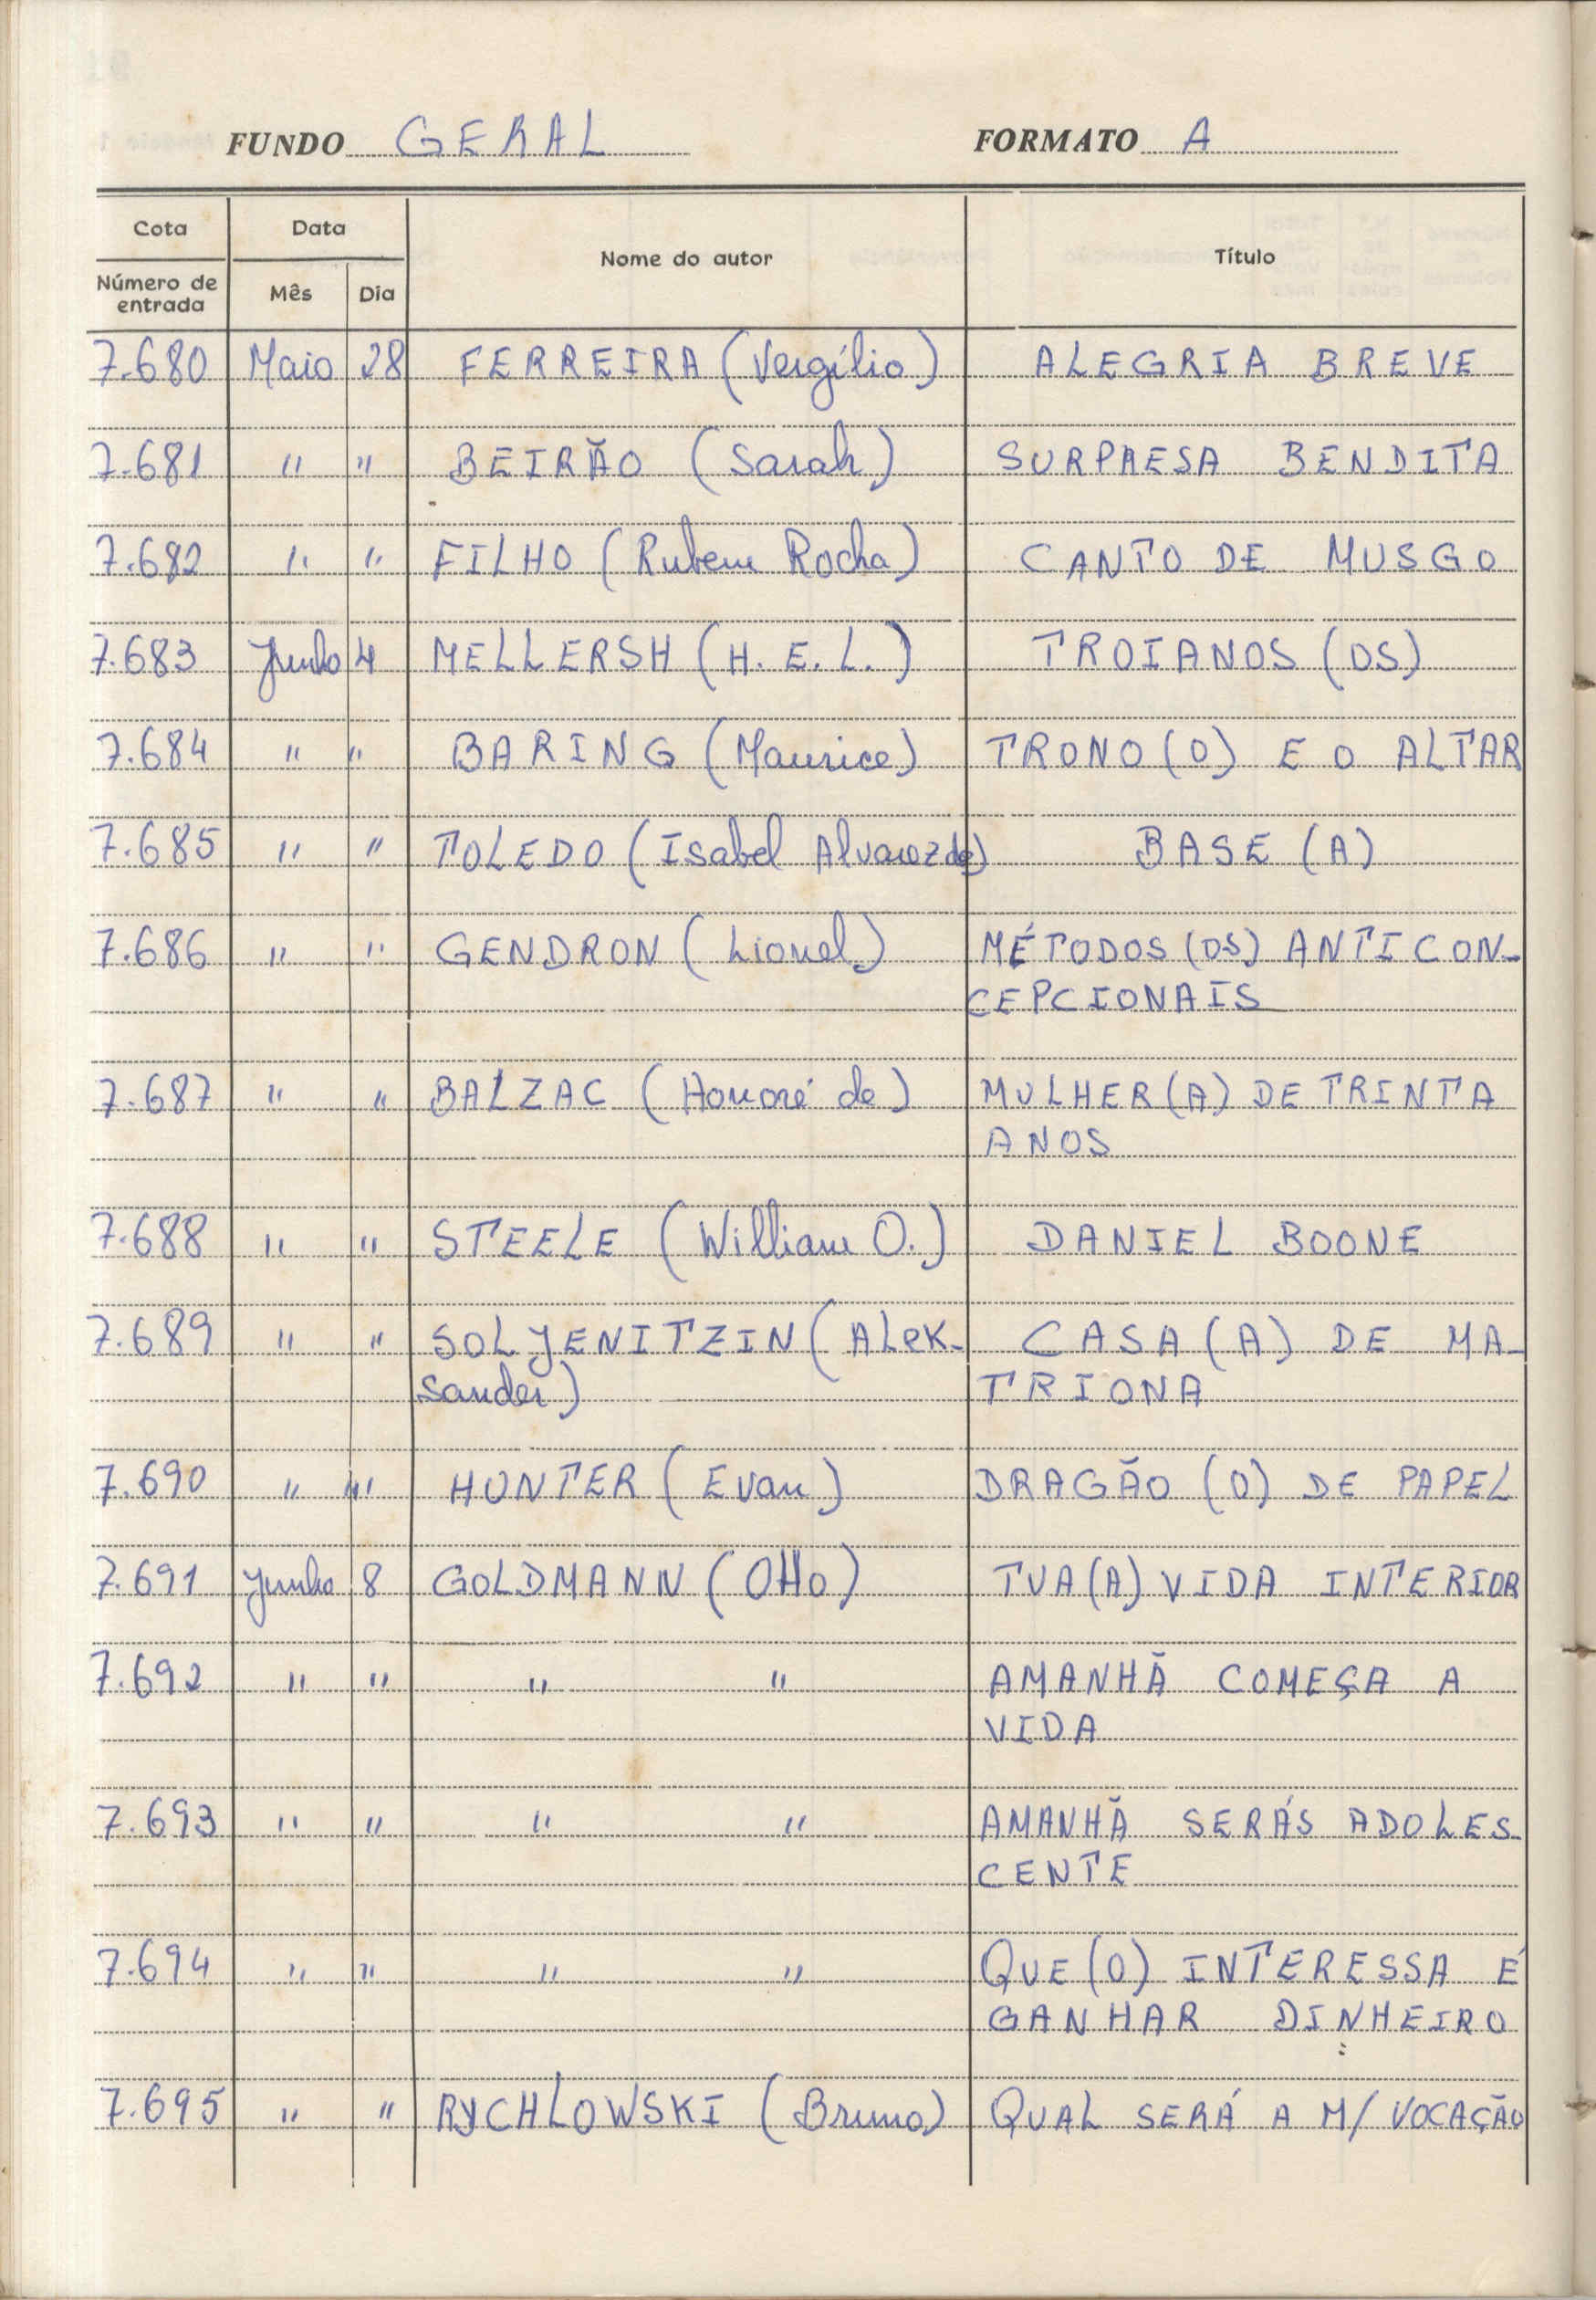 FUNDO GERAL FORMATO A
Cota Data Nome do autor Título
Número de entrada Mês Dia
7.680 Maio 28 FERREIRA (Vergílio) ALEGRIA BREVE
7.681 " " BEIRÃO (Sarah) SURPRESA BENDITA
7.682 " " FILHO (Rubem Rocha) CANTO DE MUSGO
7.683 Junho 4 MELLERSH (H. E. L.) TROIANOS (OS)
7.684 " " BARING (Maurice) TRONO (O) E O ALTAR
7.685 " " TOLEDO (Isabel Alvarez de) BASE (A)
7.686 " " GENDRON (Lionel) MÉTODOS (OS) ANTICON-
CEPCIONAIS
7.687 " " BALZAC (Honoré de) MULHER (A) DE TRINTA
ANOS
7.688 " " STEELE (William O.) DANIEL BOONE
7.689 " " SOLJENITZIN (Alek- CASA (A) DE MA-
sander) TRIONA
7.690 " " HUNTER (Evan) DRAGÃO (O) DE PAPEL
7.691 Junho 8 GOLDMANN (Otto) TUA (A) VIDA INTERIOR
7.692 " " " " AMANHÃ COMEÇA A
VIDA
7.693 " " " " AMANHÃ SERÁS ADOLES-
CENTE
7.694 " " " " QUE (O) INTERESSA É
GANHAR DINHEIRO
7.695 " " RYCHLOWSKI (Bruno) QUAL SERÁ A M/ VOCAÇÃO